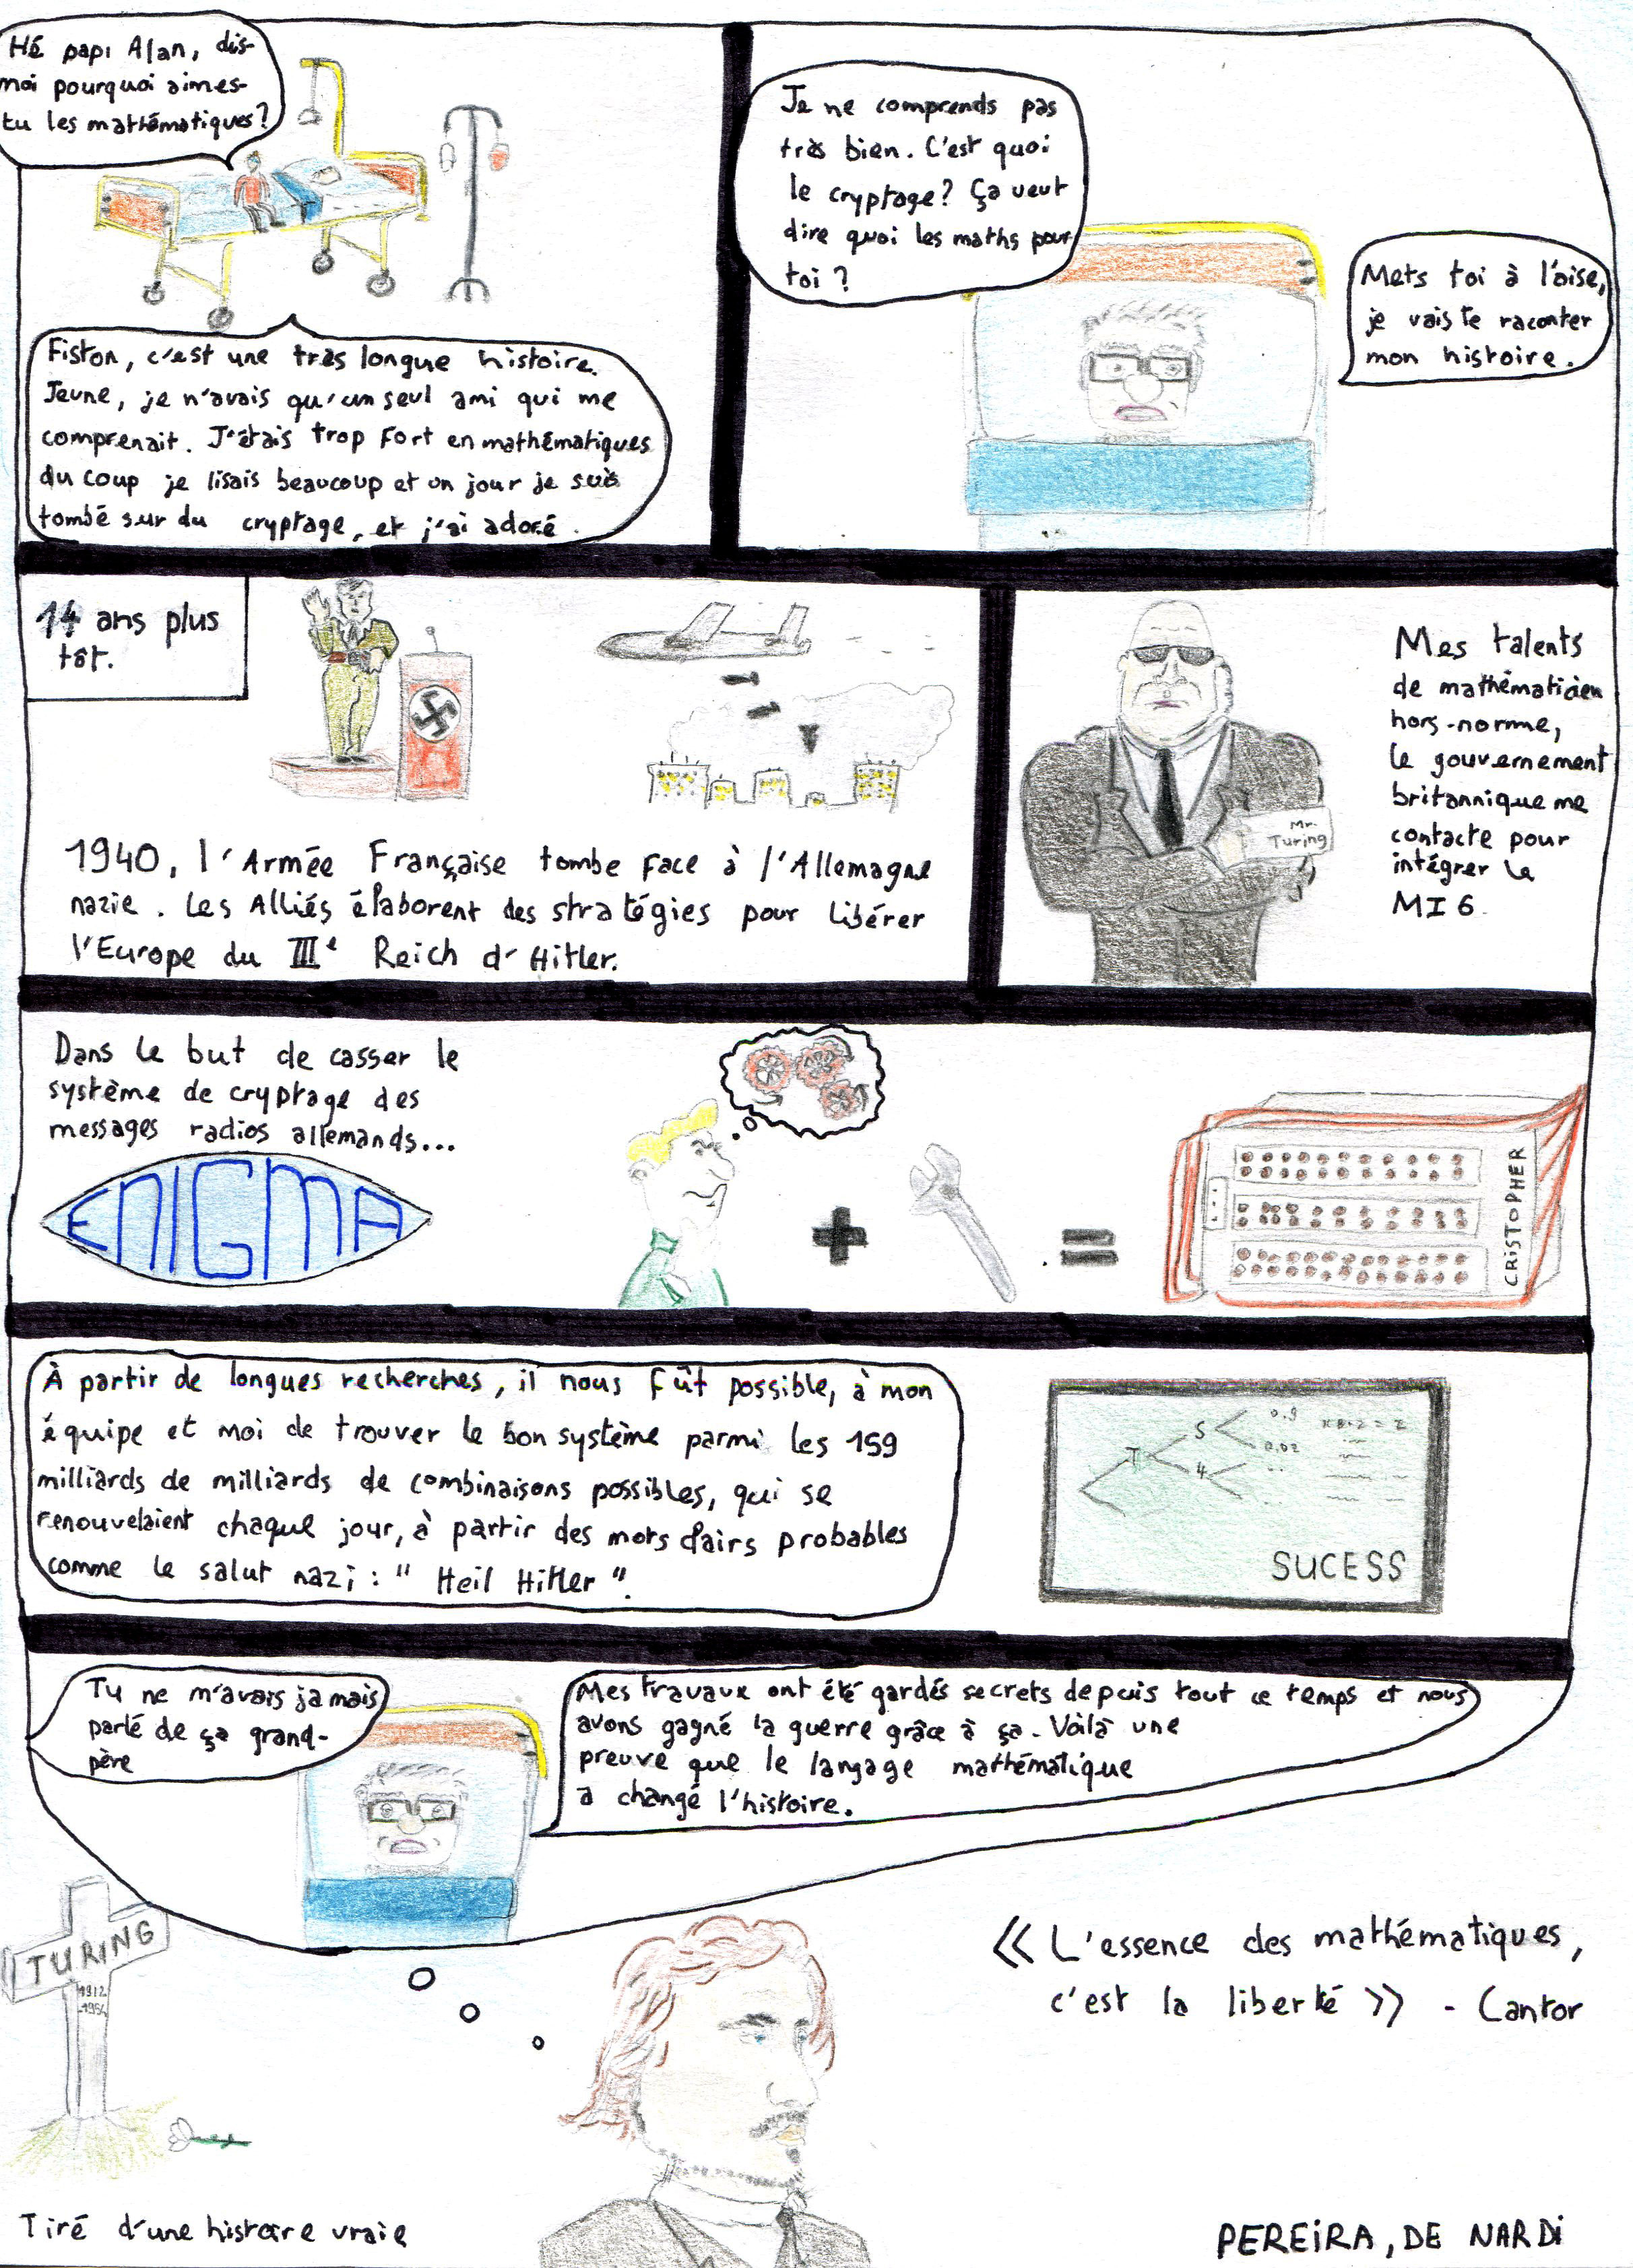 Hé papi Alan, dis-
moi pourquoi aimes-
tu les mathématiques?
Fiston, c'est une très longue histoire.
Jeune, je n'avais qu'un seul ami qui me
comprenait. J'étais trop fort en mathématiques
du coup je lisais beaucoup et un jour je suis
tombé sur du cryptage, et j'ai adoré.
Je ne comprends pas
très bien. C'est quoi
le cryptage? Ça veut
dire quoi les maths pour
toi?
Mets toi à l'aise,
je vais te raconter
mon histoire.
14 ans plus
tôt.
1940, l'Armée Française tombe face à l'Allemagne
nazie. Les Alliés élaborent des stratégies pour libérer
l'Europe du IIIe Reich d'Hitler.
Mr.
Turing
Mes talents
de mathématicien
hors-norme,
le gouvernement
britannique me
contacte pour
intégrer le
MI6.
Dans le but de casser le
système de cryptage des
messages radios allemands...
ENIGMA
+ =
CRISTOPHER
À partir de longues recherches, il nous fût possible, à mon
équipe et moi de trouver le bon système parmi les 159
milliards de milliards de combinaisons possibles, qui se
renouvelaient chaque jour, à partir des mots clairs probables
comme le salut nazi : "Heil Hitler".
S 0.9
0.02
4
SUCESS
Tu ne m'avais jamais
parlé de ça grand-
père
Mes travaux ont été gardés secrets depuis tout ce temps et nous
avons gagné la guerre grâce à ça. Voilà une
preuve que le langage mathématique
a changé l'histoire.
TURING
1912
-1954
« L'essence des mathématiques,
c'est la liberté » - Cantor
Tiré d'une histoire vraie
PEREIRA, DE NARDI